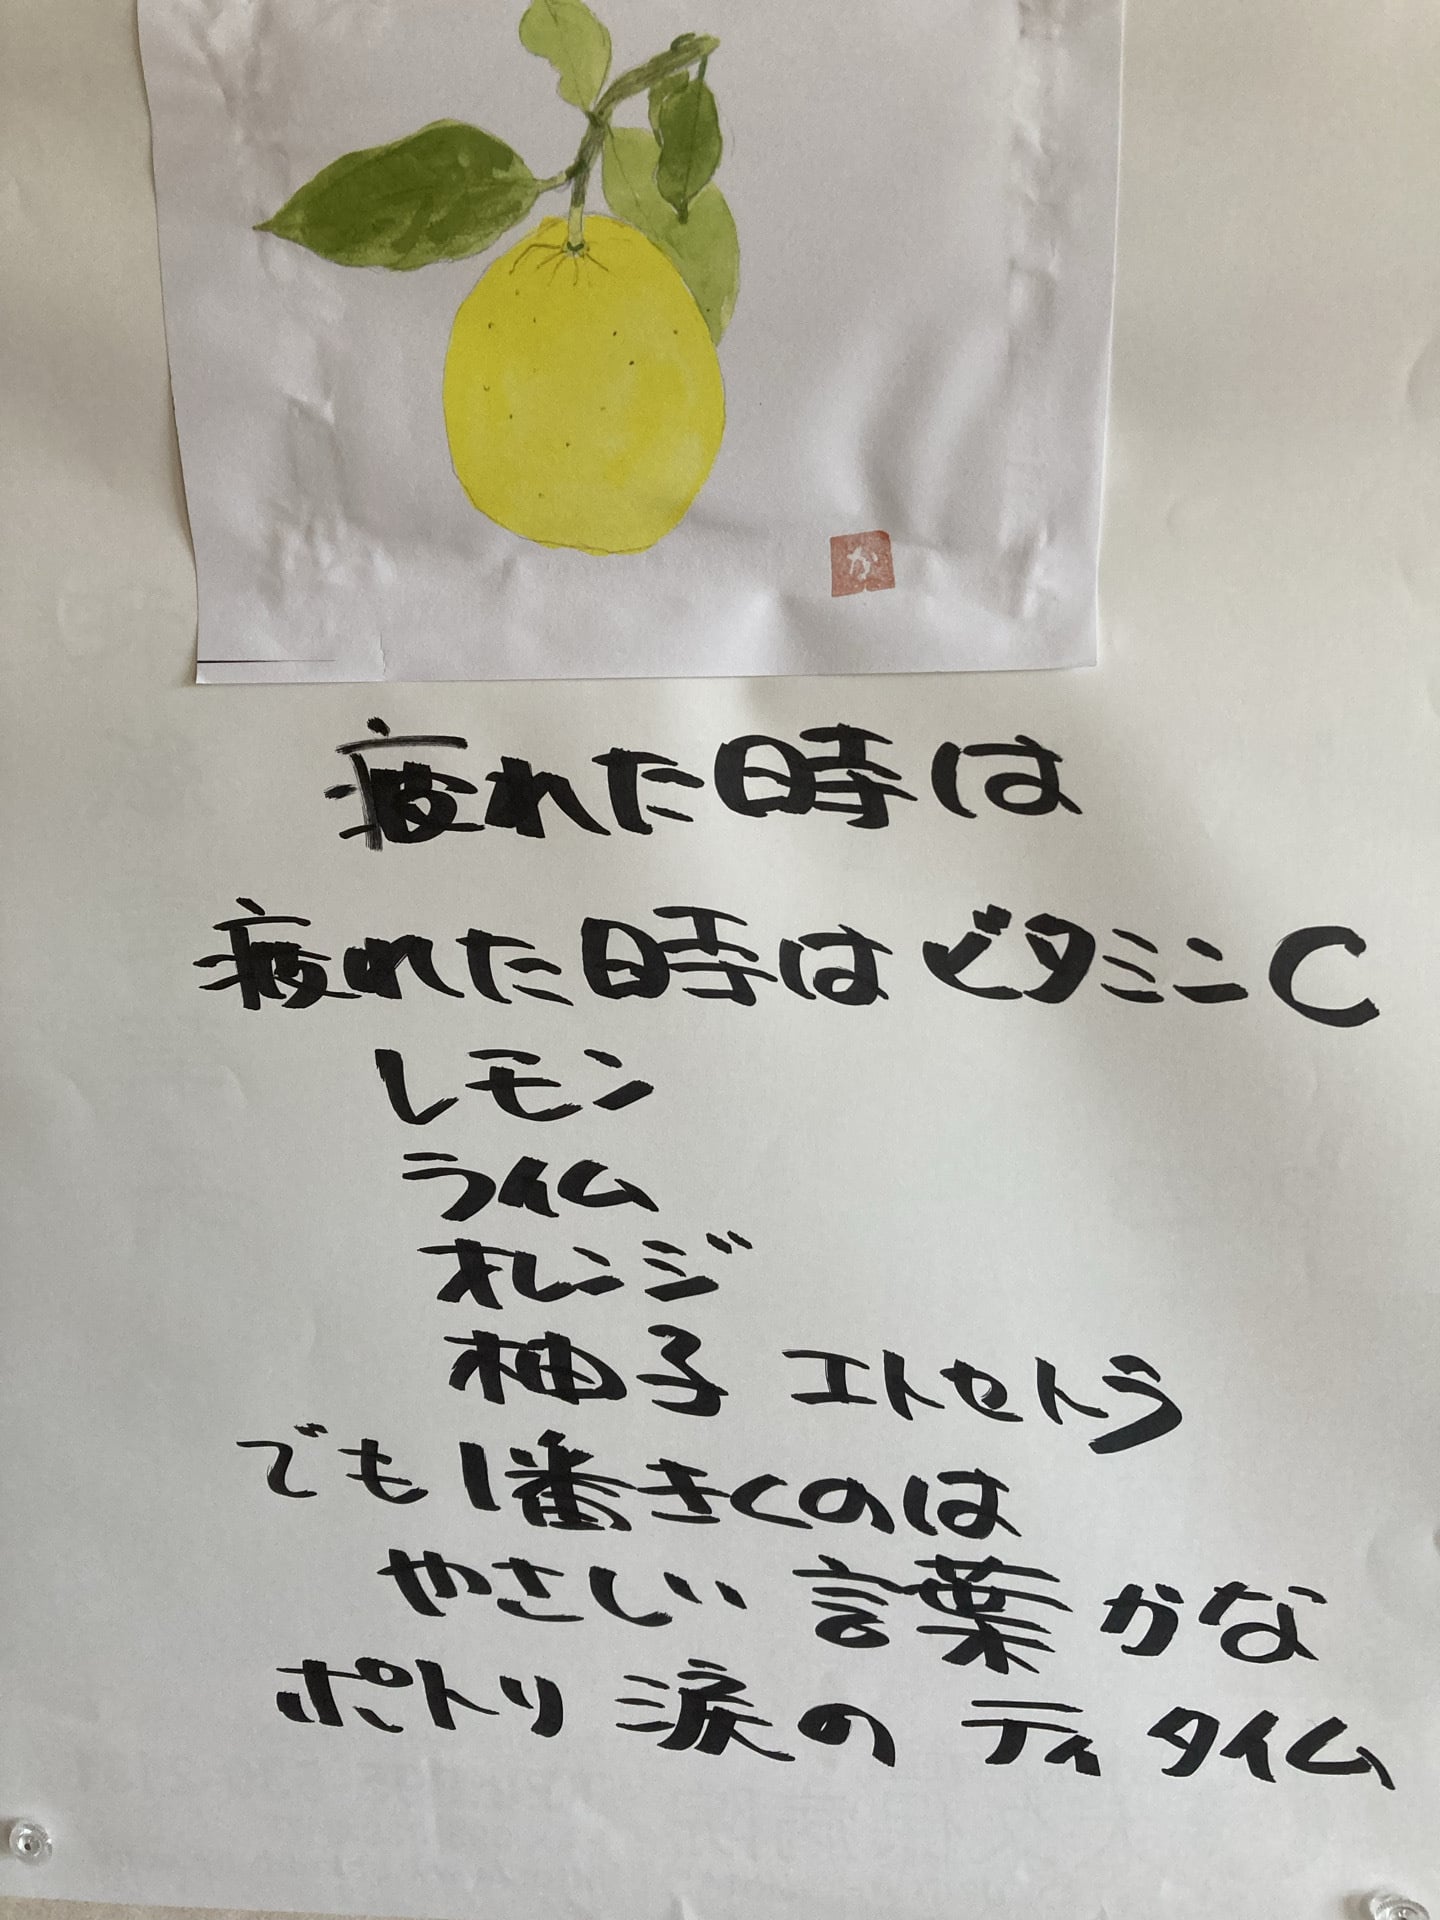 か
疲れた時は
疲れた時はビタミンC
レモン
ライム
オレンジ
柚子 エトセトラ
でも1番きくのは
やさしい 言葉かな
ポトリ 涙の ティタイム